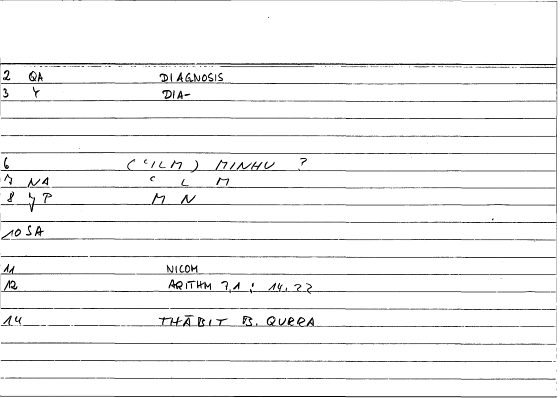 2 QA DIAGNOSIS
3 Y DIA-
6 (ʿILM) MINHU ?
7 NA ʿ L M
8 YP M N
10 SA
11 NICOM
12 ARITHM 7,1 : 14.22
14 THĀBIT B. QURRA